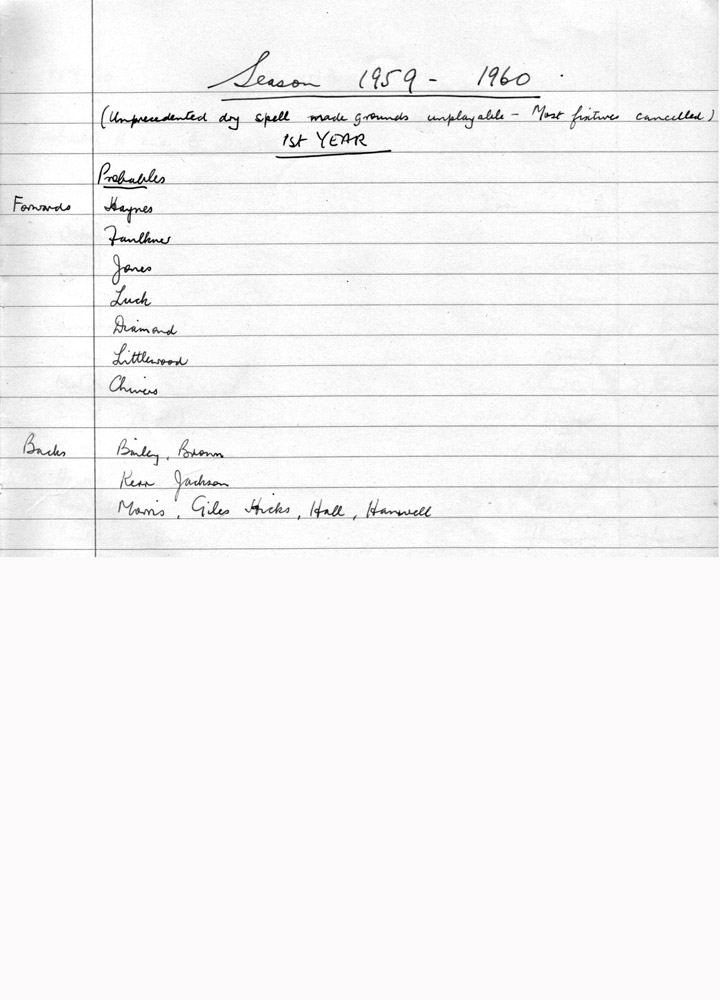 Season 1959 - 1960
(Unprecedented dry spell made grounds unplayable - Most fixtures cancelled)
1st YEAR
Probables
Forwards Haynes
Faulkner
Jones
Luck
Diamond
Littlewood
Chivers
Backs Bailey, Brown
Kerr Jackson
Morris, Giles Hicks, Hall, Hanwell